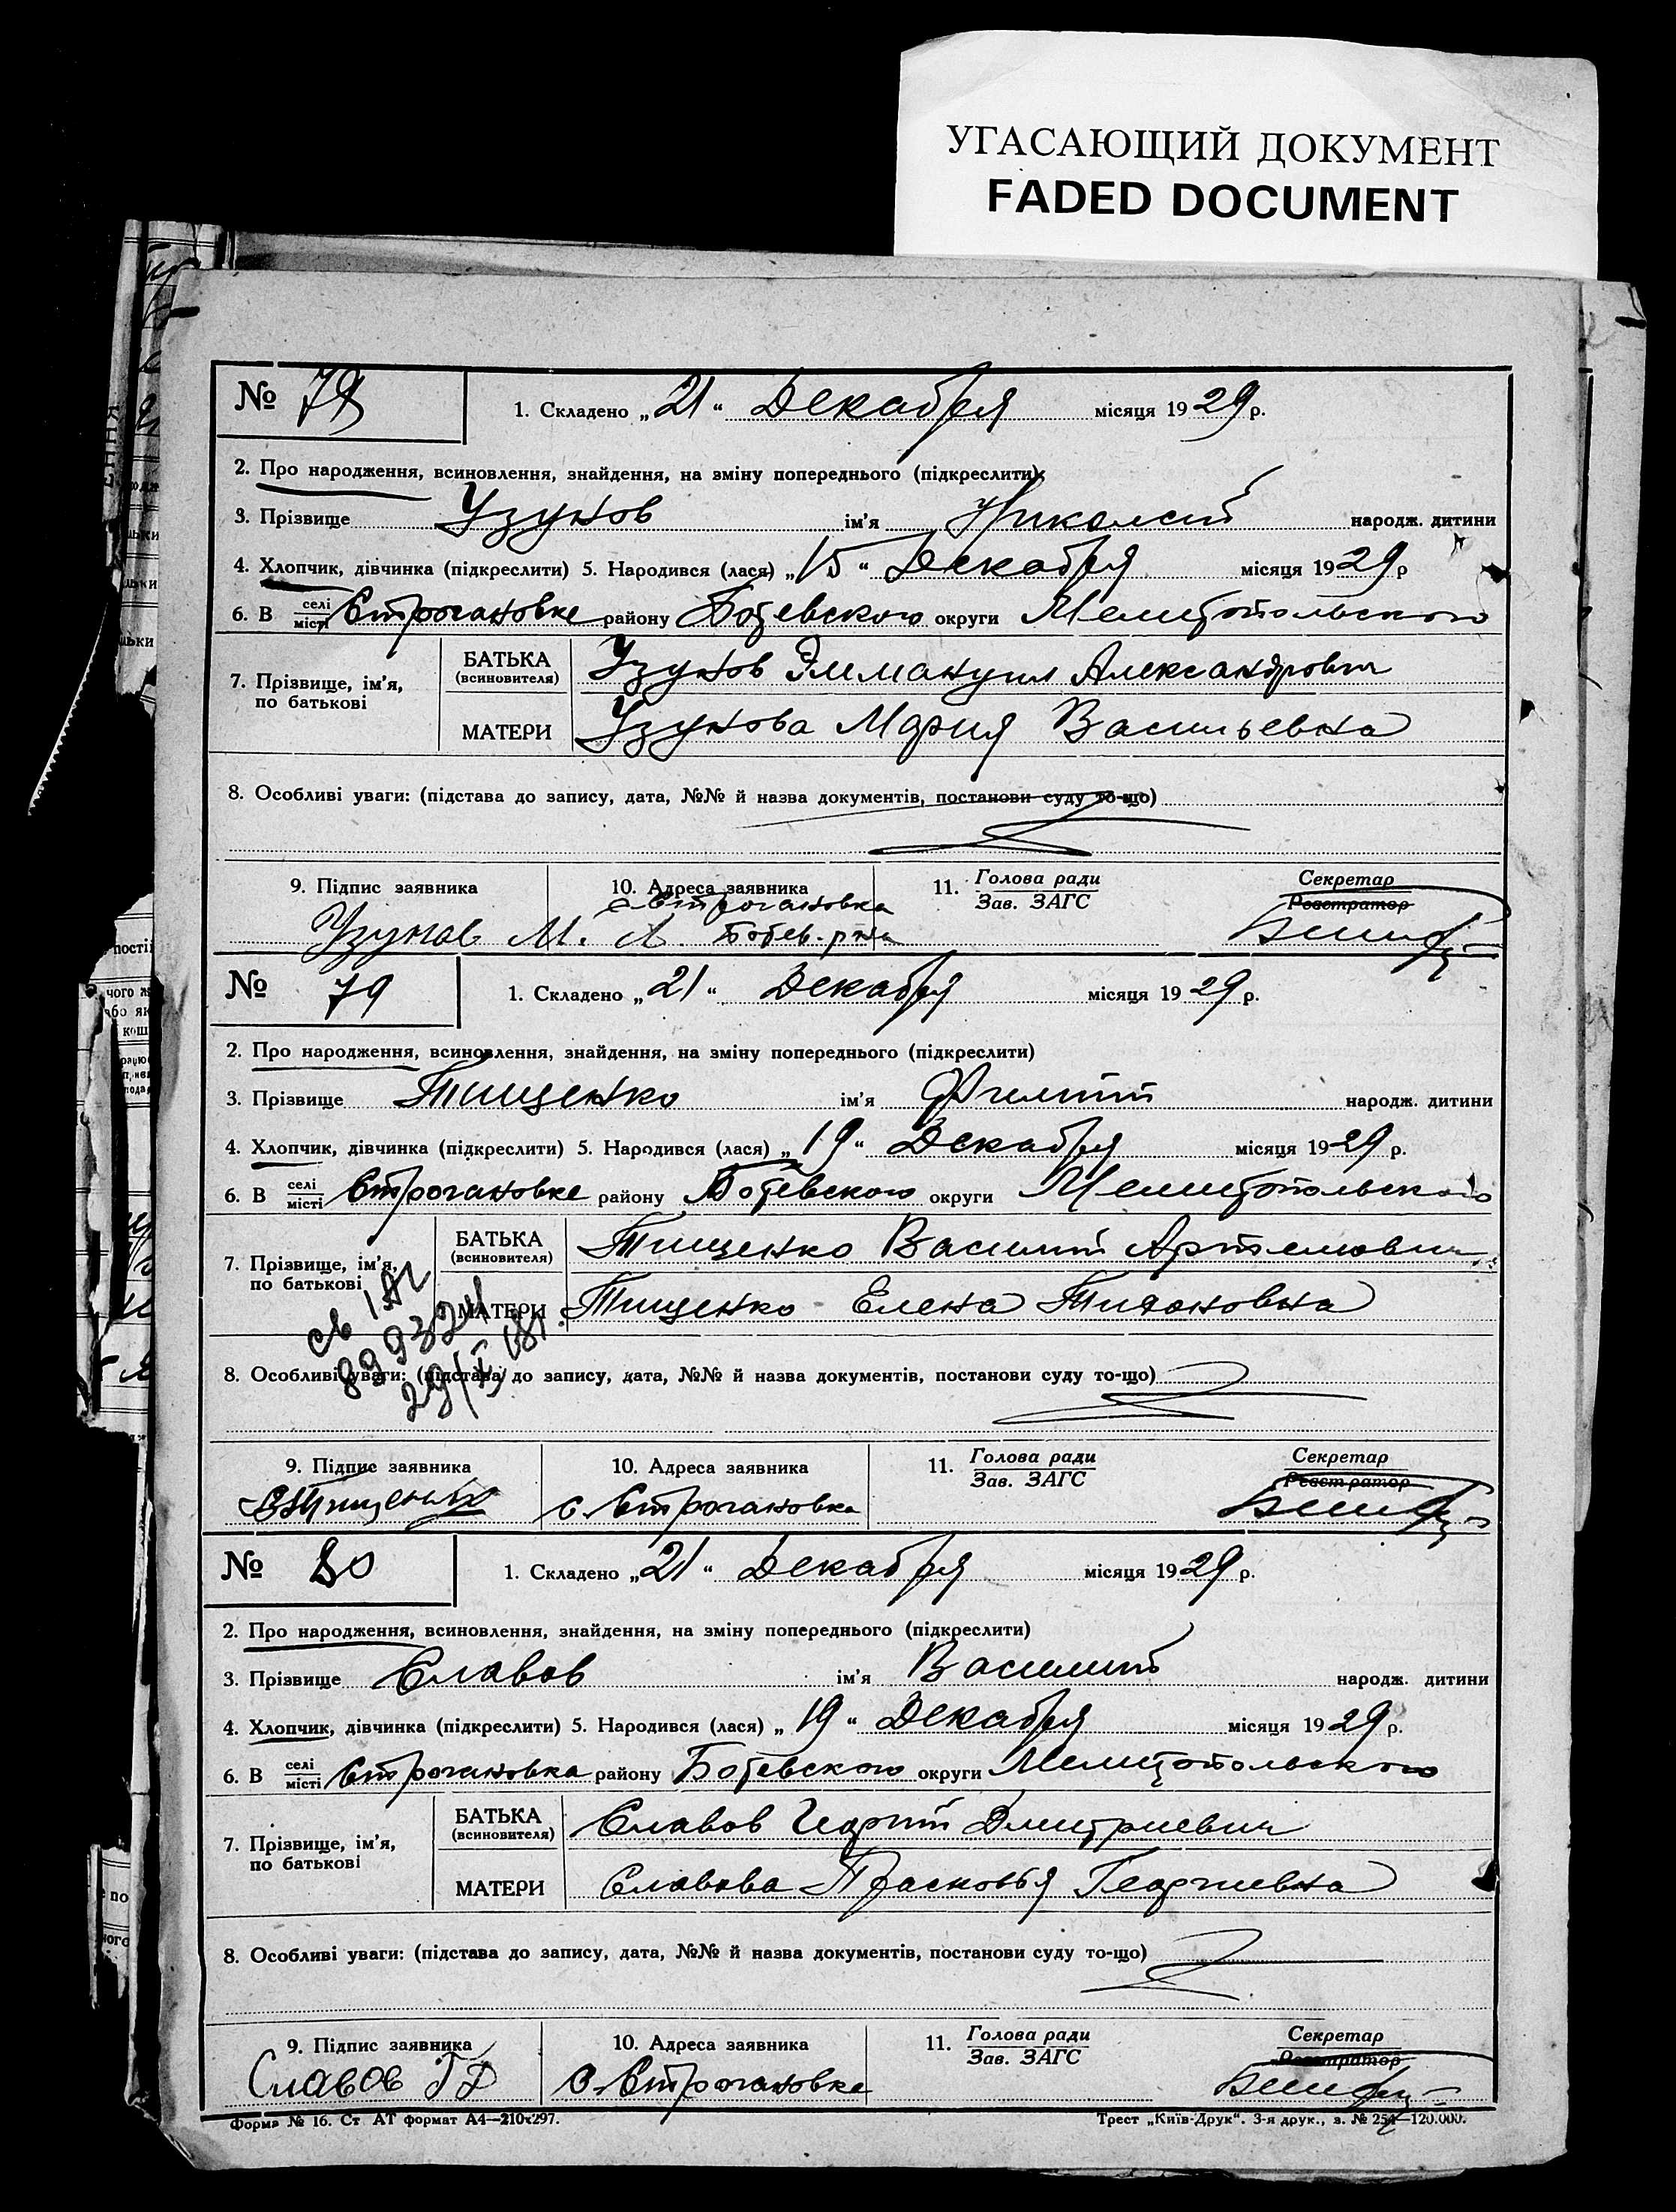 УГАСАЮЩИЙ ДОКУМЕНТ
FADED DOCUMENT
№ 78 1. Складено „21“ Декабря місяця 1929 р.
2. Про народження, всиновлення, знайдення, на зміну попереднього (підкреслити)
3. Прізвище Узунов ім'я Николай народж. дитини
4. Хлопчик, дівчинка (підкреслити) 5. Народився (лася) „15“ Декабря місяця 1929 р
6. В селі місті Строгановке району Ботевского округи Мелитопольского
7. Прізвище, ім'я, по батькові
БАТЬКА (всиновителя) Узунов Эммануил Александрович
МАТЕРИ Узунова Мария Васильевна
8. Особливі уваги: (підстава до запису, дата, №№ й назва документів, постанови суду то-що)
9. Підпис заявника 10. Адреса заявника 11. Голова ради Секретар
Зав. ЗАГС Реєстратор
с. Строгановка
Узунов М. А. Ботев. р-на
№ 79 1. Складено „21“ Декабря місяця 1929 р.
2. Про народження, всиновлення, знайдення, на зміну попереднього (підкреслити)
3. Прізвище Тищенко ім'я Филипп народж. дитини
4. Хлопчик, дівчинка (підкреслити) 5. Народився (лася) „19“ Декабря місяця 1929 р.
6. В селі місті Строгановке району Ботевского округи Мелитопольского
7. Прізвище, ім'я, по батькові
БАТЬКА (всиновителя) Тищенко Василий Артемович
МАТЕРИ Тищенко Елена Тихоновна
899324
8. Особливі уваги: (підстава до запису, дата, №№ й назва документів, постанови суду то-що)
9. Підпис заявника 10. Адреса заявника 11. Голова ради Секретар
Зав. ЗАГС Реєстратор
с. Строгановка
№ 80 1. Складено „21“ Декабря місяця 1929 р.
2. Про народження, всиновлення, знайдення, на зміну попереднього (підкреслити)
3. Прізвище Славов ім'я Василий народж. дитини
4. Хлопчик, дівчинка (підкреслити) 5. Народився (лася) „19“ Декабря місяця 1929 р.
6. В селі місті Строгановка району Ботевского округи Мелитопольского
7. Прізвище, ім'я, по батькові
БАТЬКА (всиновителя) Славов Дмитриевич
МАТЕРИ Славова Прасковья Георгиевна
8. Особливі уваги: (підстава до запису, дата, №№ й назва документів, постанови суду то-що)
9. Підпис заявника 10. Адреса заявника 11. Голова ради Секретар
Зав. ЗАГС Реєстратор
Славов Г Д с. Строгановка
Форма № 16. Ст. АТ формат А4—210х297. Трест „Київ-Друк“. 3-я друк., з. № 254—120.000.